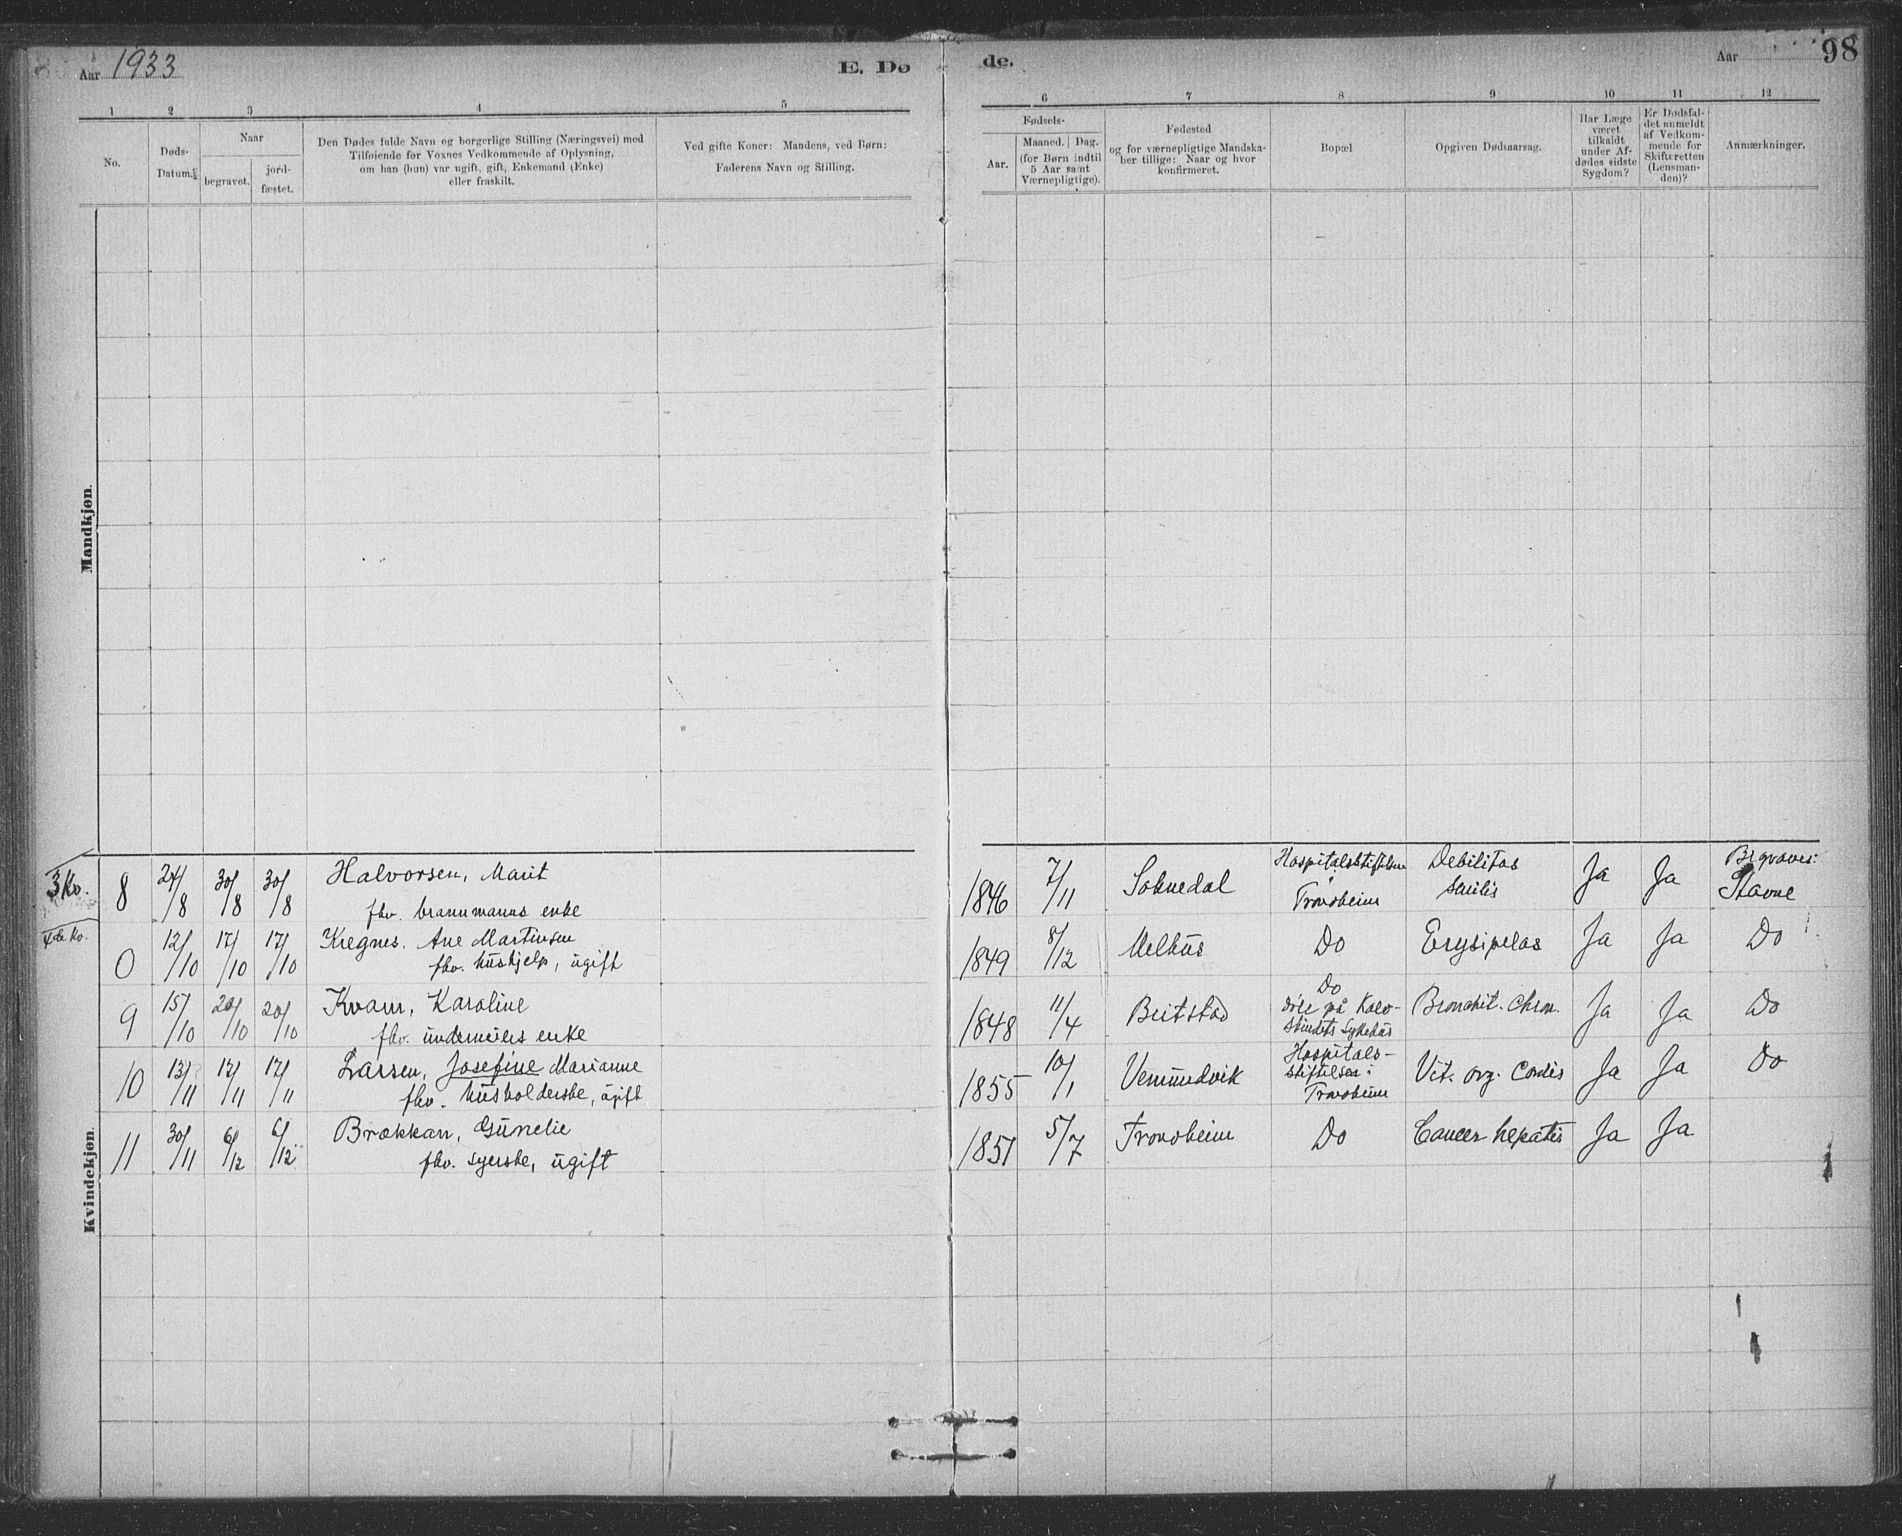 Aar 1933
E. Dø
de.
Aar
98
1 2 3 4 5
6 7 8 9 10 11 12
No.
Døds-
Datum.
Naar
begravet.
jord-
fæstet.
Den Dødes fulde Navn og borgerlige Stilling (Næringsvei) med
Tilføiende for Voxnes Vedkommende af Oplysning,
om han (hun) var ugift, gift, Enkemand (Enke)
eller fraskilt.
Ved gifte Koner: Mandens, ved Børn:
Faderens Navn og Stilling.
Fødsels-
Aar.
Maaned. Dag.
(for Børn indtil
5 Aar samt
Værnepligtige).
Fødested
og for værnepligtige Mandska-
ber tillige: Naar og hvor
konfirmeret.
Bopæl
Opgiven Dødsaarsag.
Har Læge
været
tilkaldt
under Af-
dødes sidste
Sygdom?
Er Dødsfal-
det anmeldt
af Vedkom-
mende for
Skifteretten
(Lensman-
den)?
Anmærkninger.
Mandkjøn.
Kvindekjøn.
3 Kv.
8 24/8 30/8 30/8 Halvorsen, Marit
fhv. brannmanns enke
1846 7/11 Soknedal Hospitalsstiftelsen
i
Trondheim
Debilitas
senilis
Ja Ja Begraves:
Stavne
4de Kv.
0 12/10 17/10 17/10 Kregnes, Ane Martinsen
fhv. hushjelp, ugift
1849 8/12 Melhus Do Erysipelas Ja Ja Do
9 15/10 20/10 20/10 Kvam, Karoline
fhv. undermeiers enke
1848 11/4 Beitstad Do
døde på Kalv-
skindets Sykehus
Bronchit. chron. Ja Ja Do
10 13/11 17/11 17/11 Larsen, Josefine Marianne
fhv. husholderske, ugift
1855 10/1 Vemundvik Hospitals-
stiftelsen i
Trondheim
Vit. org. Cordis Ja Ja Do
11 30/11 6/12 6/12 Brækkan, Gunelie
fhv. syerske, ugift
1851 5/7 Trondheim Do Cancer hepatis Ja Ja